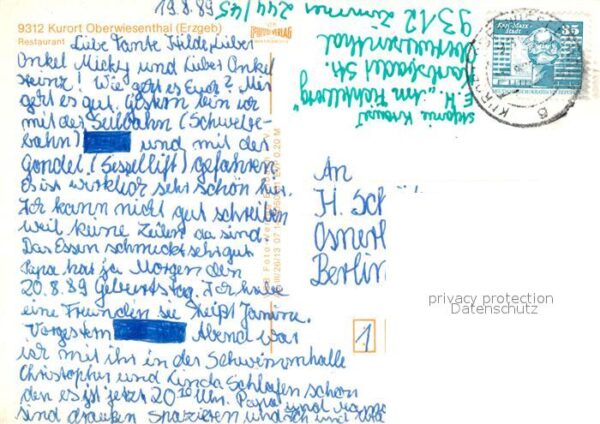 19.8.89
9312 Kurort Oberwiesenthal (Erzgeb)
Restaurant
Liebe Tante Hilde, Lieber
Onkel Micky und Lieber Onkel
Heinz! Wie gert es Euch? Mir
gert es gut. Gestern bin ich
mit der Seilbahn (Schwebe-
bahn) und mit der
Gondel (Sessellift) gefahren
Es ist wirklich sehr schön hir.
Ich kann nicht gut schreiben
weil keine Zeilen da sind.
Das Essen schmeckt sehr gut
Papa hat ja Morgen den
20.8.89 Geburtstag. Ich habe
eine Freundin sie heißt Janine.
Vorgestern Abend war
wir mit ihr in der Schwimmhalle
Christopher und Linda Schlafen schon
den es ist jetzt 20 Uhr. Papa und Mama
sind draußen spazieren und ich und
Zimmer 244/45
9312
Oberwiesenthal
Karlsbader Str.
E.H. "Am Fichtelberg"
Stefanie
Karl-Marx-
Stadt
35
An
H. Sch
Berlin
1
privacy protection
Datenschutz